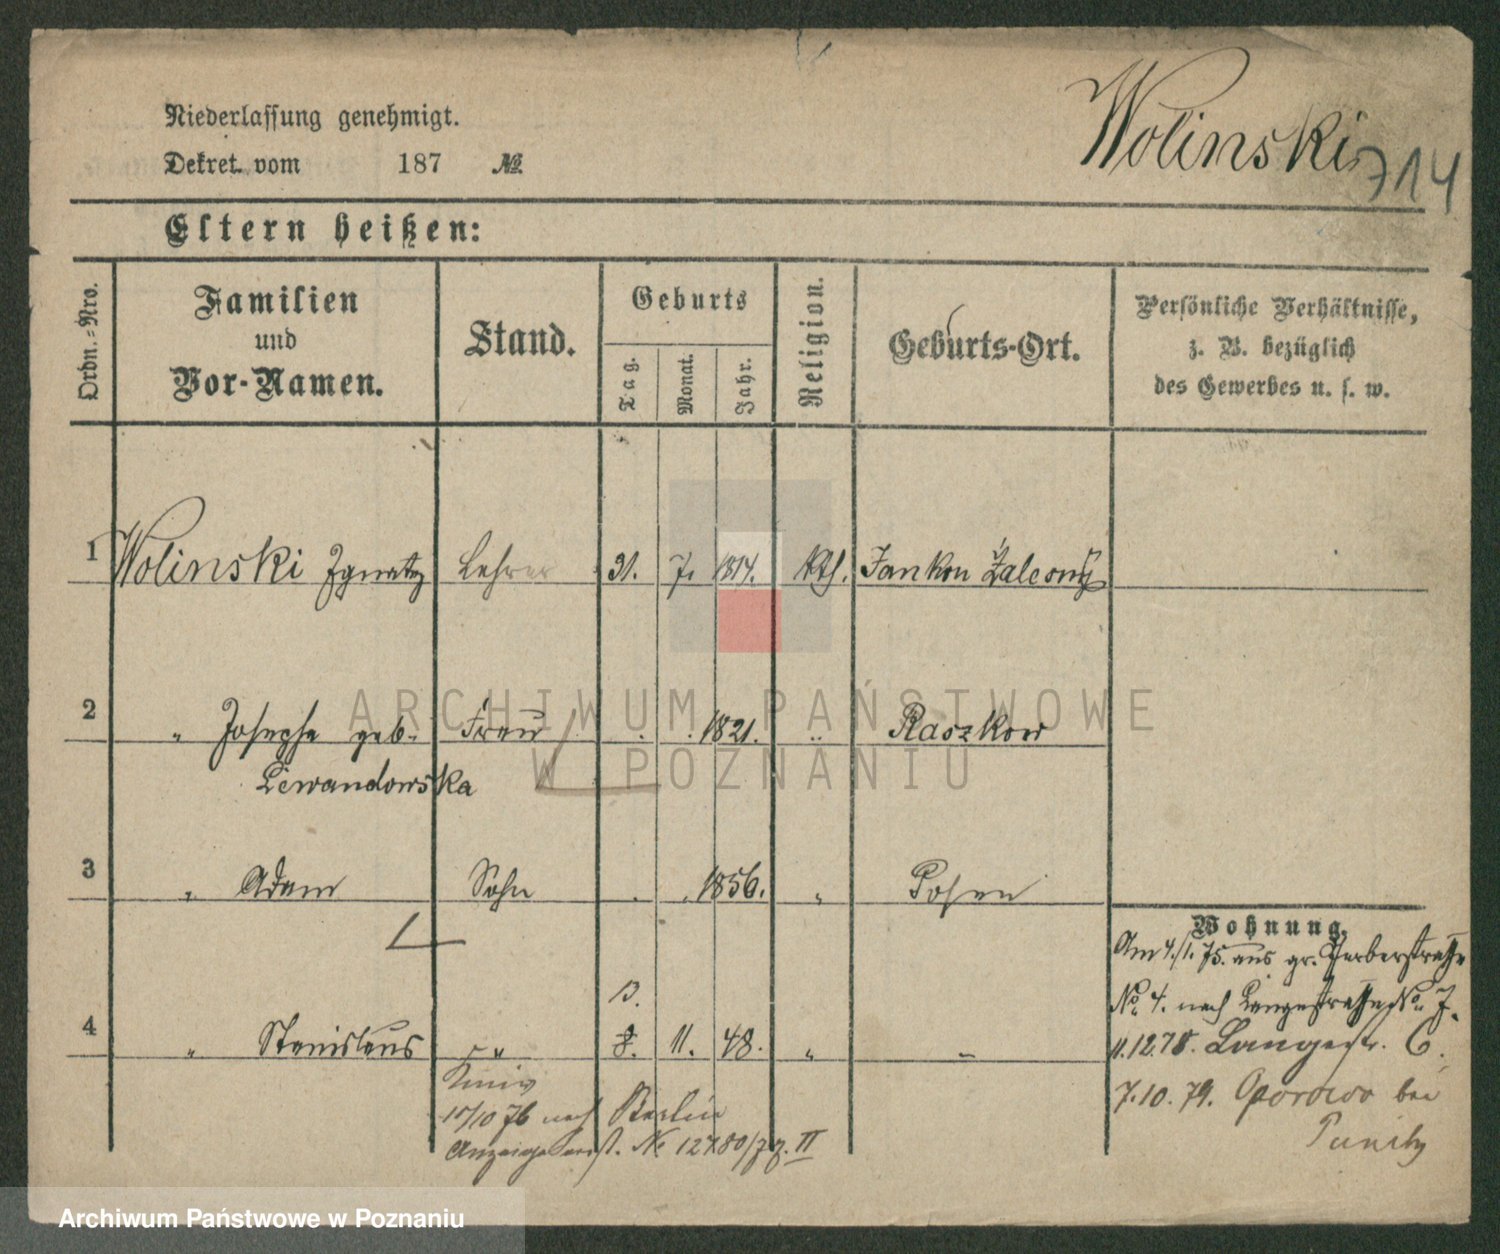 Niederlassung genehmigt.
Wolinski 714
Dekret vom 187 №
Eltern heißen:
Ordn.-Nro.
Familien
und
Vor-Namen.
Stand.
Geburts
Tag.
Monat.
Jahr.
Religion.
Geburts-Ort.
Persönliche Verhältnisse,
z. B. bezüglich
des Gewerbes u. s. w.
1 Wolinski Ignatz Lehrer 31. 7. 1814. kth. Jankow Zalesny
2 " Josepha geb. Frau . . 1821. " Raszkow
Lewandowska
3 " Adam Sohn . . 1856. " Posen
Wohnung.
Am 4./1. 75. aus gr. Gerberstraße
No. 4. nach Langestraße No. 7.
13.
4 " Stanislaus " 8. 11. 48. " "
11.12.78. Langestr. 6.
7.10.79. Oporowo bei
Punitz
15/10 76 nach Berlin
№ 12780/77. II
ARCHIWUM PAŃSTWOWE
W POZNANIU
Archiwum Państwowe w Poznaniu